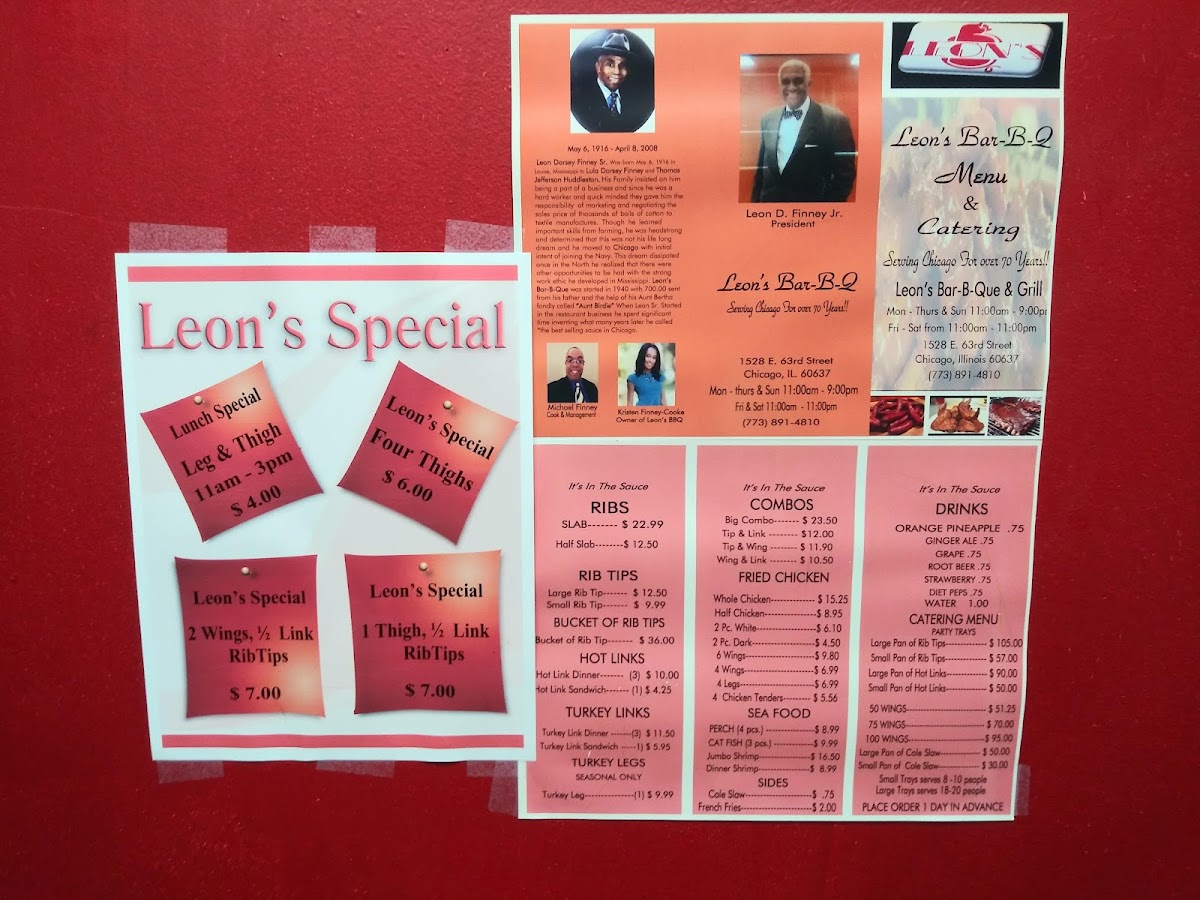 Leon's Special
Lunch Special
Leg & Thigh
11am - 3pm
$ 4.00
Leon's Special
Four Thighs
$ 6.00
Leon's Special
2 Wings, ½ Link
RibTips
$ 7.00
Leon's Special
1 Thigh, ½ Link
RibTips
$ 7.00
May 6, 1916 - April 8, 2008
Leon Dorsey Finney Sr. Was born May 6, 1916 in
Louise, Mississippi to Lula Dorsey Finney and Thomas
Jefferson Huddleston. His Family insisted on him
being a part of a business and since he was a
hard worker and quick minded they gave him the
responsibility of marketing and negotiating the
sales price of thousands of bails of cotton to
textile manufactures. Though he learned
important skills from farming, he was headstrong
and determined that this was not his life long
dream and he moved to Chicago with initial
intent of joining the Navy. This dream dissipated
once in the North he realized that there were
other opportunities to be had with the strong
work ethic he developed in Mississippi. Leon's
Bar-B-Que was started in 1940 with 700.00 sent
from his father and the help of his Aunt Bertha
fondly called "Aunt Birdie" When Leon Sr. Started
in the restaurant business he spent significant
time inventing what many years later he called
"the best selling sauce in Chicago.
Michael Finney
Cook & Management
Kristen Finney-Cooke
Owner of Leon's BBQ
Leon D. Finney Jr.
President
Leon's Bar-B-Q
Serving Chicago For over 70 Years!!
1528 E. 63rd Street
Chicago, IL. 60637
Mon - thurs & Sun 11:00am - 9:00pm
Fri & Sat 11:00am - 11:00pm
(773) 891-4810
LEON'S
Leon's Bar-B-Q
Menu
&
Catering
Serving Chicago For over 70 Years!!
Leon's Bar-B-Que & Grill
Mon - Thurs & Sun 11:00am - 9:00pm
Fri - Sat from 11:00am - 11:00pm
1528 E. 63rd Street
Chicago, Illinois 60637
(773) 891-4810
It's In The Sauce
RIBS
SLAB------- $ 22.99
Half Slab--------$ 12.50
RIB TIPS
Large Rib Tip------- $ 12.50
Small Rib Tip------- $ 9.99
BUCKET OF RIB TIPS
Bucket of Rib Tip------- $ 36.00
HOT LINKS
Hot Link Dinner------- (3) $ 10.00
Hot Link Sandwich------- (1) $ 4.25
TURKEY LINKS
Turkey Link Dinner -------(3) $ 11.50
Turkey Link Sandwich -----1) $ 5.95
TURKEY LEGS
SEASONAL ONLY
Turkey Leg---------------(1) $ 9.99
It's In The Sauce
COMBOS
Big Combo------- $ 23.50
Tip & Link -------- $12.00
Tip & Wing ------- $ 11.90
Wing & Link -------- $ 10.50
FRIED CHICKEN
Whole Chicken-------------- $ 15.25
Half Chicken---------------- $ 8.95
2 Pc. White------------------ $ 6.10
2 Pc. Dark------------------- $ 4.50
6 Wings---------------------- $ 9.80
4 Wings---------------------- $ 6.99
4 Legs----------------------- $ 6.99
4 Chicken Tenders--------- $ 5.56
SEA FOOD
PERCH (4 pcs.) --------------- $ 8.99
CAT FISH (3 pcs.) ------------ $ 9.99
Jumbo Shrimp---------------- $ 16.50
Dinner Shrimp---------------- $ 8.99
SIDES
Cole Slaw----------------------$ .75
French Fries-----------------------$ 2.00
It's In The Sauce
DRINKS
ORANGE PINEAPPLE .75
GINGER ALE .75
GRAPE .75
ROOT BEER .75
STRAWBERRY .75
DIET PEPS .75
WATER 1.00
CATERING MENU
PARTY TRAYS
Large Pan of Rib Tips------------- $ 105.00
Small Pan of Rib Tips------------- $ 57.00
Large Pan of Hot Links------------- $ 90.00
Small Pan of Hot Links------------- $ 50.00
50 WINGS-------------------------- $ 51.25
75 WINGS-------------------------- $ 70.00
100 WINGS------------------------- $ 95.00
Large Pan of Cole Slaw------------- $ 50.00
Small Pan of Cole Slaw------------- $ 30.00
Small Trays serves 8 -10 people
Large Trays serves 18-20 people
PLACE ORDER 1 DAY IN ADVANCE